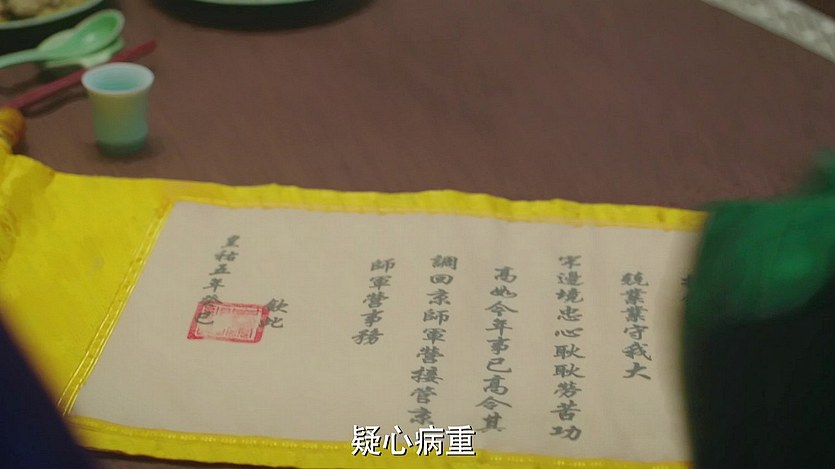 業業守我大
宋邊境忠心耿耿勞苦功
高如今年事已高令其
調回京師軍營接管京
師軍營事務
欽此
皇祐五年癸巳
疑心病重